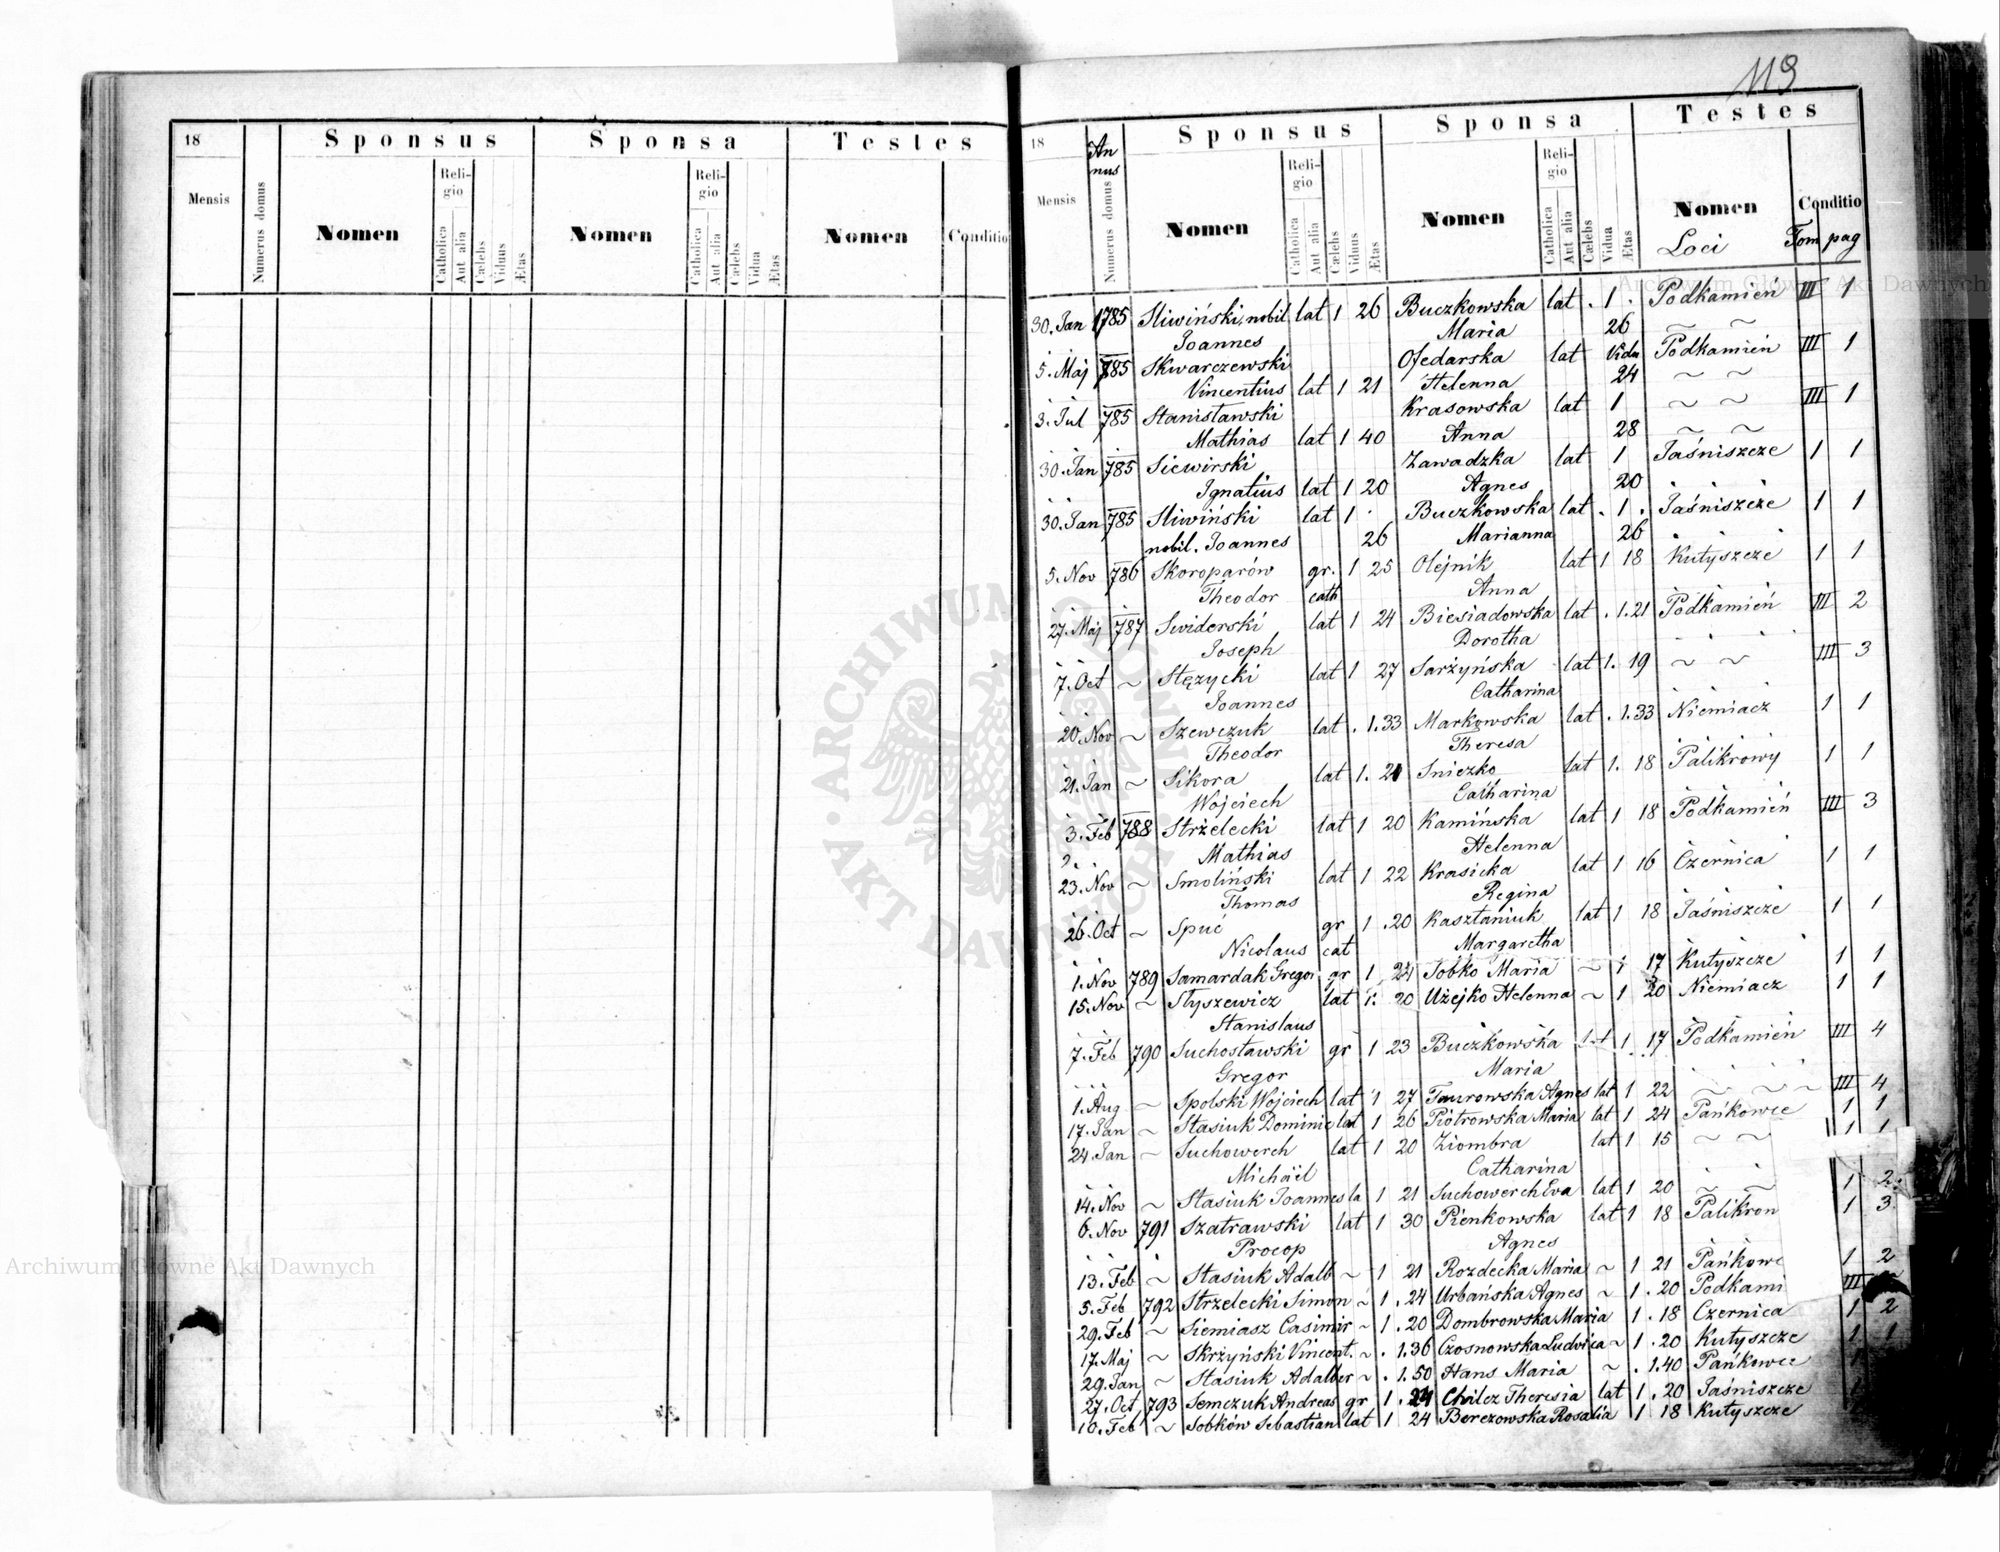 119
18 Sponsus Sponsa Testes
Mensis Numerus domus Nomen Religio Catholica Aut alia Cælebs Viduus Ætas Nomen Religio Catholica Aut alia Cælebs Vidua Ætas Nomen Conditio
18 Annus Sponsus Sponsa Testes
Mensis Numerus domus Nomen Religio Catholica Aut alia Cælebs Viduus Ætas Nomen Religio Catholica Aut alia Cælebs Vidua Ætas Nomen Conditio
Loci Tom pag
30. Jan 1785 Sliwiński, nobil lat 1 26 Buczkowska lat . 1 . Podkamień III 1
Joannes Maria 26 ~ ~
5. Maj 785 Skwarczewski Ofedarska lat Vidu Podkamień III 1
Vincentius lat 1 21 Helenna 24 ~ ~
3. Jul 785 Stanisławski Krasowska lat 1 ~ ~ III 1
Mathias lat 1 40 Anna 28 ~ ~
30. Jan 785 Siewirski Zawadzka lat 1 Jaśniszcze 1 1
Ignatius lat 1 20 Agnes 20
30. Jan 785 Sliwiński lat 1 Buczkowska lat . 1 . Jaśniszcze 1 1
nobil. Joannes 26 Marianna 26
5. Nov 786 Skoroparów gr. 1 25 Olejnik lat 1 18 Kutyszcze 1 1
Theodor cath Anna
27. Maj 787 Swiderski lat 1 24 Biesiadowska lat . 1. 21 Podkamień III 2
Joseph Dorotha
7. Oct ~ Stęzycki lat 1 27 Sarżyńska lat 1. 19 ~ ~ III 3
Joannes Catharina
20. Nov ~ Szewczuk lat . 1. 33 Markowska lat . 1. 33 Niemiacz 1 1
Theodor Theresa
21. Jan ~ Sikora lat 1. 21 Sniezko lat 1. 18 Palikrowy 1 1
Wojciech Catharina
3. Feb 788 Strzelecki lat 1 20 Kamińska lat 1 18 Podkamień III 3
Mathias Helenna
23. Nov ~ Smoliński lat 1 22 Krasicka lat 1 16 Czernica 1 1
Thomas Regina
26. Oct ~ Spuć gr 1 . 20 Kasztaniuk lat 1 18 Jaśniszcze 1 1
Nicolaus cat Margaretha
1. Nov 789 Samardak Gregor gr 1 24 Sobko Maria ~ 1 17 Kutyszcze 1 1
15. Nov ~ Słyszewicz lat 1. 20 Użejko Helenna ~ 1 20 Niemiacz 1 1
Stanislaus
7. Feb 790 Suchosławski gr 1 23 Buczkowska lat 1 17 Podkamień III 4
Gregor Maria
1. Aug ~ Spolski Wojciech lat 1 27 Taurowska Agnes lat 1 22 ~ ~ ~ III 4
17. Jan ~ Stasiuk Dominic lat 1 26 Piotrowska Maria lat 1 24 Pańkowce 1 1
24. Jan ~ Suchowerch lat 1 20 Ziombra lat 1 15 ~ ~ 1 1
Michäel Catharina
14. Nov ~ Stasiuk Joannes la 1 21 Suchowerch Eva lat 1 20 ~ ~ 1 2
6. Nov 791 Szatrawski lat 1 30 Pienkowska lat 1 18 Palikrow 1 3
Procop Agnes
13. Feb ~ Stasiuk Adalb ~ 1 21 Rozdecka Maria ~ 1 21 Pańkowc 1 2
5. Feb 792 Strzelecki Simon ~ 1 . 24 Urbańska Agnes ~ 1 . 20 Podkami III
29. Feb ~ Siemiasz Casimir ~ 1 . 20 Dombrowska Maria 1 . 18 Czernica 1 2
17. Maj ~ Skrzyński Vincent. ~ . 1. 36 Czosnowska Ludvica ~ 1 . 20 Kutyszcze 1 1
29. Jan ~ Stasiuk Adalber ~ . 1. 50 Hans Maria ~ . 1. 40 Pańkowce
27. Oct 793 Semczuk Andreas gr 1 . 24 Chilcz Theresia lat 1 . 20 Jaśniszcze
10. Feb ~ Sobków Sebastian lat 1 24 Berezowska Rosalia 1 18 Kutyszcze
ARCHIWUM GŁÓWNE AKT DAWNYCH
Archiwum Główne Akt Dawnych
Archiwum Główne Akt Dawnych